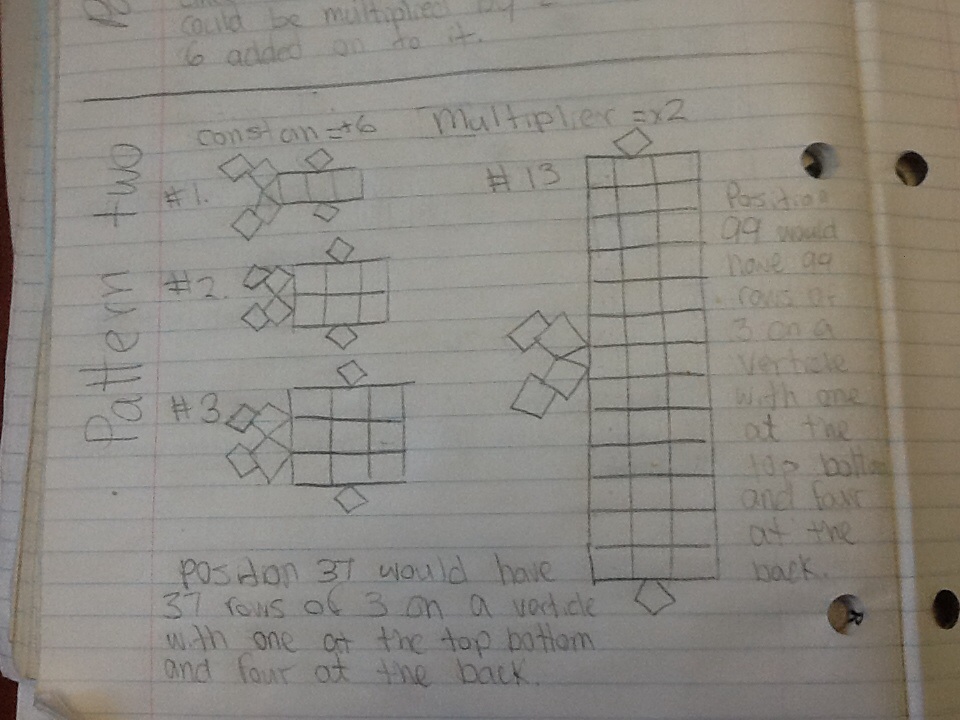 could be multiplied by
6 added on to it.
Pattern two
constan =+6 Multiplier =x2
#1.
#2.
#3
#13
Position
99 would
have 99
rows of
3 on a
verticle
with one
at the
top bottom
and four
at the
back.
position 37 would have
37 rows of 3 on a verticle
with one at the top bottom
and four at the back.